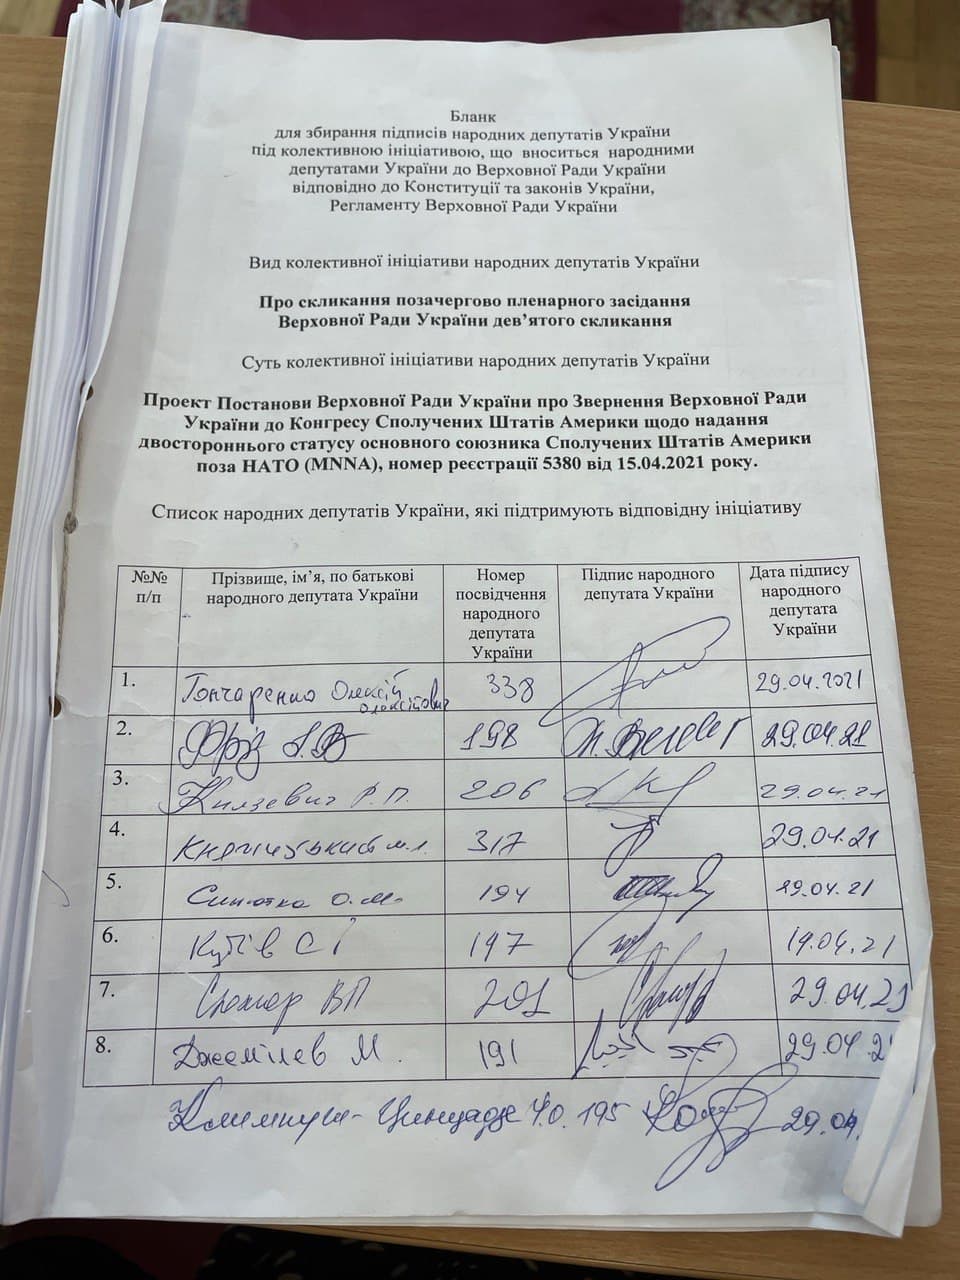 Бланк
для збирання підписів народних депутатів України
під колективною ініціативою, що вноситься народними
депутатами України до Верховної Ради України
відповідно до Конституції та законів України,
Регламенту Верховної Ради України
Вид колективної ініціативи народних депутатів України
Про скликання позачергово пленарного засідання
Верховної Ради України дев’ятого скликання
Суть колективної ініціативи народних депутатів України
Проект Постанови Верховної Ради України про Звернення Верховної Ради
України до Конгресу Сполучених Штатів Америки щодо надання
двостороннього статусу основного союзника Сполучених Штатів Америки
поза НАТО (MNNA), номер реєстрації 5380 від 15.04.2021 року.
Список народних депутатів України, які підтримують відповідну ініціативу
№№ п/п
Прізвище, ім’я, по батькові
народного депутата України
Номер
посвідчення
народного
депутата
України
Підпис народного
депутата України
Дата підпису
народного
депутата
України
1. Гончаренко Олексій Олексійович 338 29.04.2021
2. Фріз І.В 198 29.04.21
3. Князевич Р.П. 206 29.04.21
4. Княжицький М.Л. 317 29.04.21
5. Синютка О.М. 194 29.04.21
6. Кутів С 197 19.04.21
7. Сюмар ВП 201 29.04.21
8. Джемілєв М. 191 29.04.2
Климпуш-Цинцадзе І.О. 195 29.04.